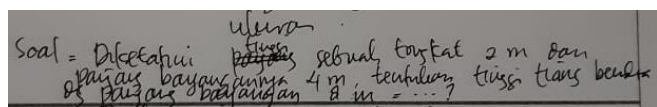 ukuran
Soal = Diketahui tinggi sebuah tongkat 2 m dan
panjang bayangannya 4 m, tentukan tinggi tiang bendera
dg panjang bayangan 8 m = ....?